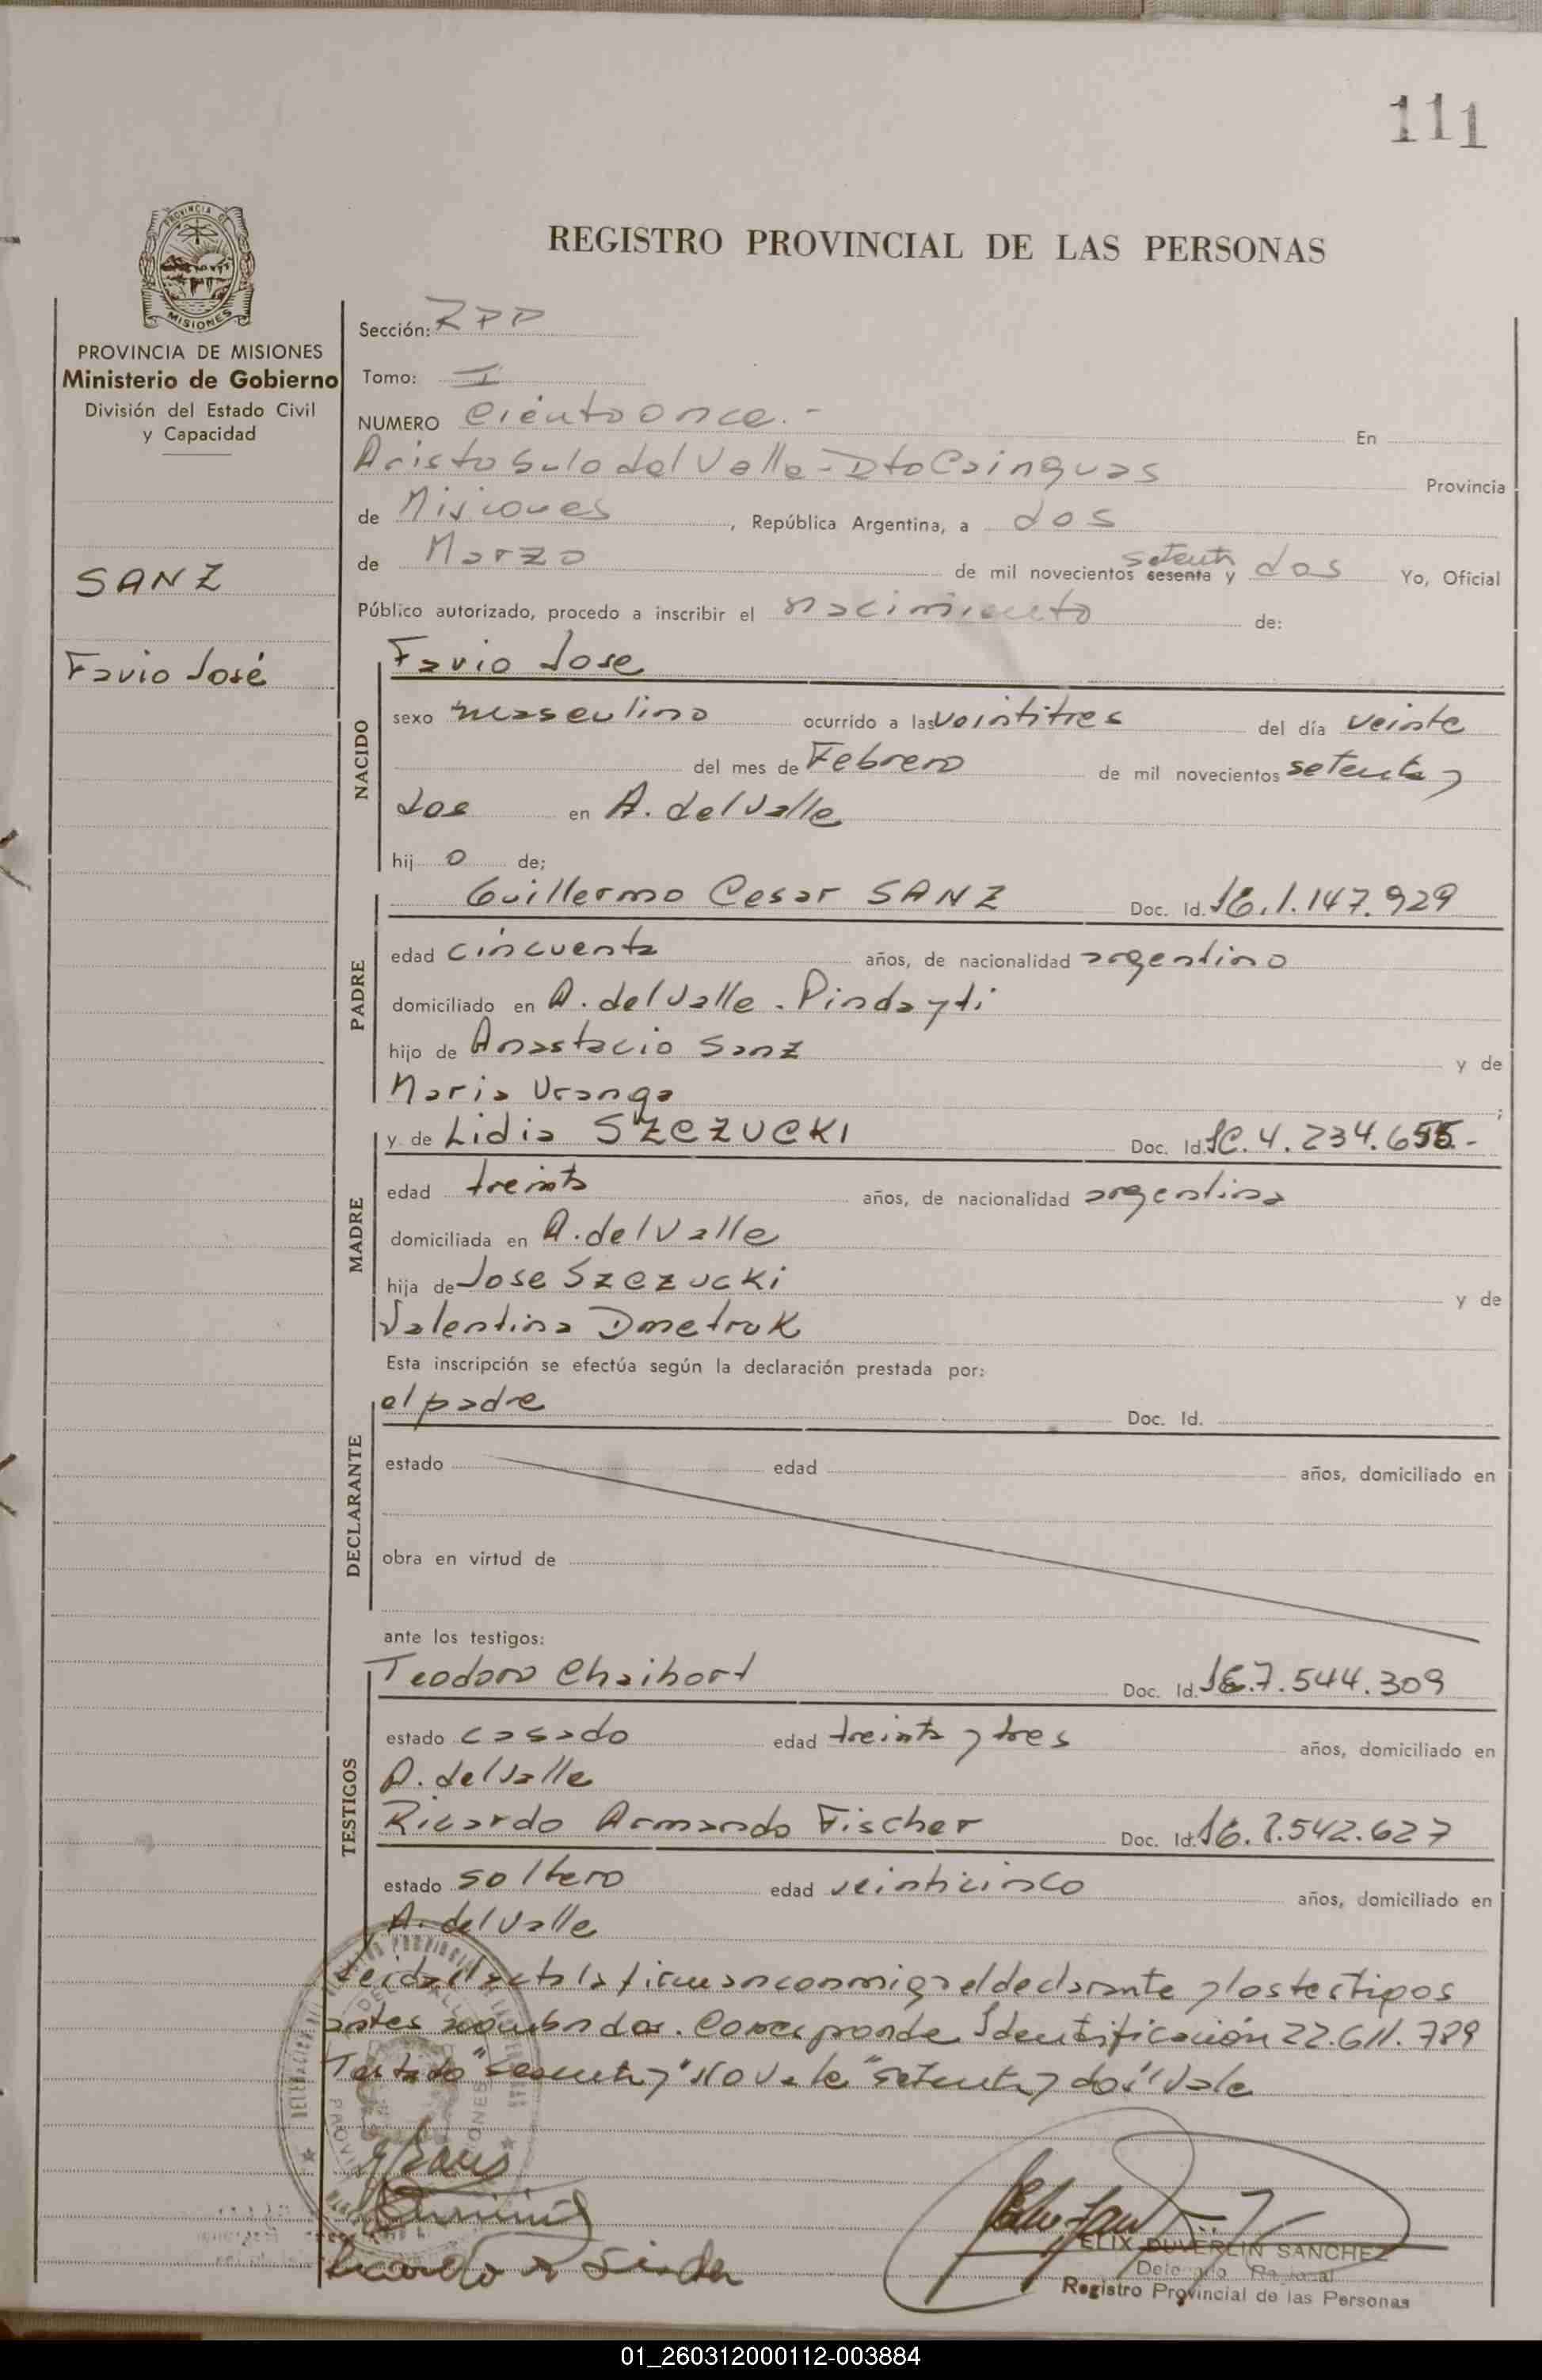 111
PROVINCIA DE
MISIONES
REGISTRO PROVINCIAL DE LAS PERSONAS
PROVINCIA DE MISIONES
Ministerio de Gobierno
División del Estado Civil
y Capacidad
SANZ
Favio José
Sección: RPP
Tomo: I
NUMERO Ciento once.- En
Aristobulo del Valle - Dto Cainguas Provincia
de Misiones, República Argentina, a dos
de Marzo de mil novecientos sesenta y setenta dos Yo, Oficial
Público autorizado, procedo a inscribir el nacimiento de:
NACIDO
Favio Jose
sexo masculino ocurrido a las veintitres del día veinte
del mes de Febrero de mil novecientos setenta y
dos en A. del Valle
hij o de;
PADRE
Guillermo Cesar SANZ Doc. Id. 1.147.929
edad cincuenta años, de nacionalidad argentino
domiciliado en A. del Valle - Pindayti
hijo de Anastacio Sanz y de
Maria Uranga ;
MADRE
y de Lidia SZCZUCKI Doc. Id. LC. 4.234.655.-
edad treinta años, de nacionalidad argentina
domiciliada en A. del Valle
hija de Jose Szczucki y de
Valentina Dmetruk
Esta inscripción se efectúa según la declaración prestada por:
DECLARANTE
el padre Doc. Id.
estado edad años, domiciliado en
obra en virtud de
ante los testigos:
TESTIGOS
Teodoro Chaihort Doc. Id. LE. 7.544.309
estado casado edad treinta y tres años, domiciliado en
A. del Valle
Ricardo Armando Fischer Doc. Id. .542.627
estado soltero edad veinticinco años, domiciliado en
A. del Valle
Leida el acta la firman conmigo el declarante y los testigos
antes nombrados. Corresponde Identificación 22.611.789
Testado "sesenta y" No vale "setenta y dos" Vale
FELIX DUVERLIN SANCHEZ
Delegado Regional
Registro Provincial de las Personas
01_260312000112-003884